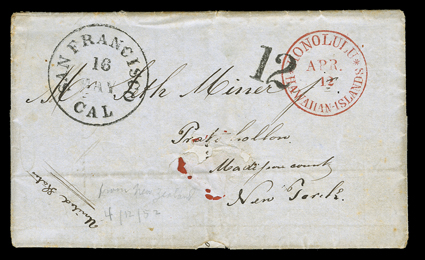 SAN FRANCISCO
16
MAY
CAL
12
HONOLULU
APR.
12
HAWAIIAN-ISLANDS
Mr Seth Miner
Pratt's hollow
Madison county
New York.
United States
from New Zealand
4/12/52